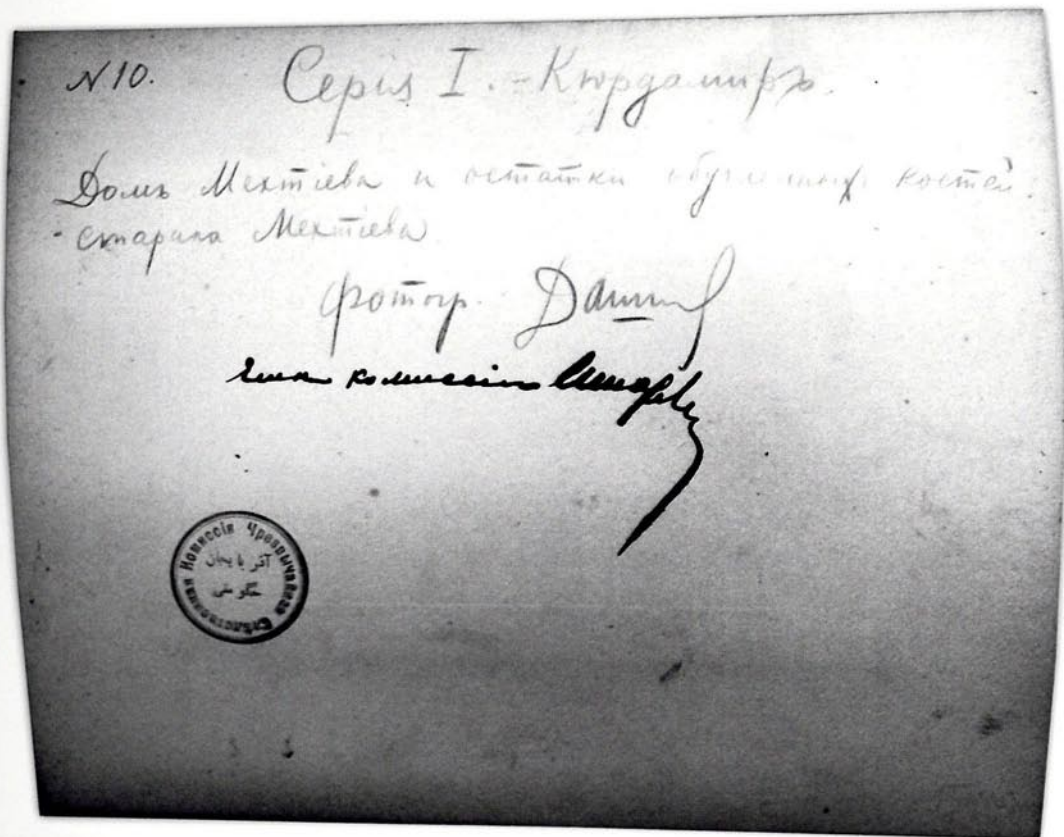 N 10. Серія I. - Кюрдамиръ.
Домъ Мехтіева и остатки обугленныхъ костей
старика Мехтіева
фотогр.
комиссіи
Чрезвычайная Слѣдственная Комиссія
آذربایجان